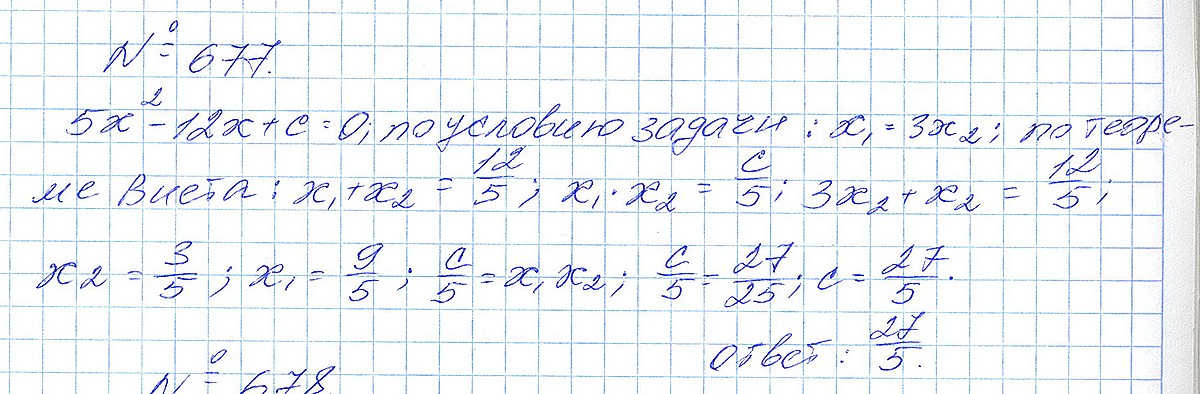 № 677.
5x² - 12x + c = 0; по условию задачи: x₁ = 3x₂; по теоре-
ме Виета: x₁ + x₂ = 12/5; x₁ · x₂ = c/5; 3x₂ + x₂ = 12/5;
x₂ = 3/5; x₁ = 9/5; c/5 = x₁x₂; c/5 = 27/25; c = 27/5.
Ответ: 27/5.
№ 678